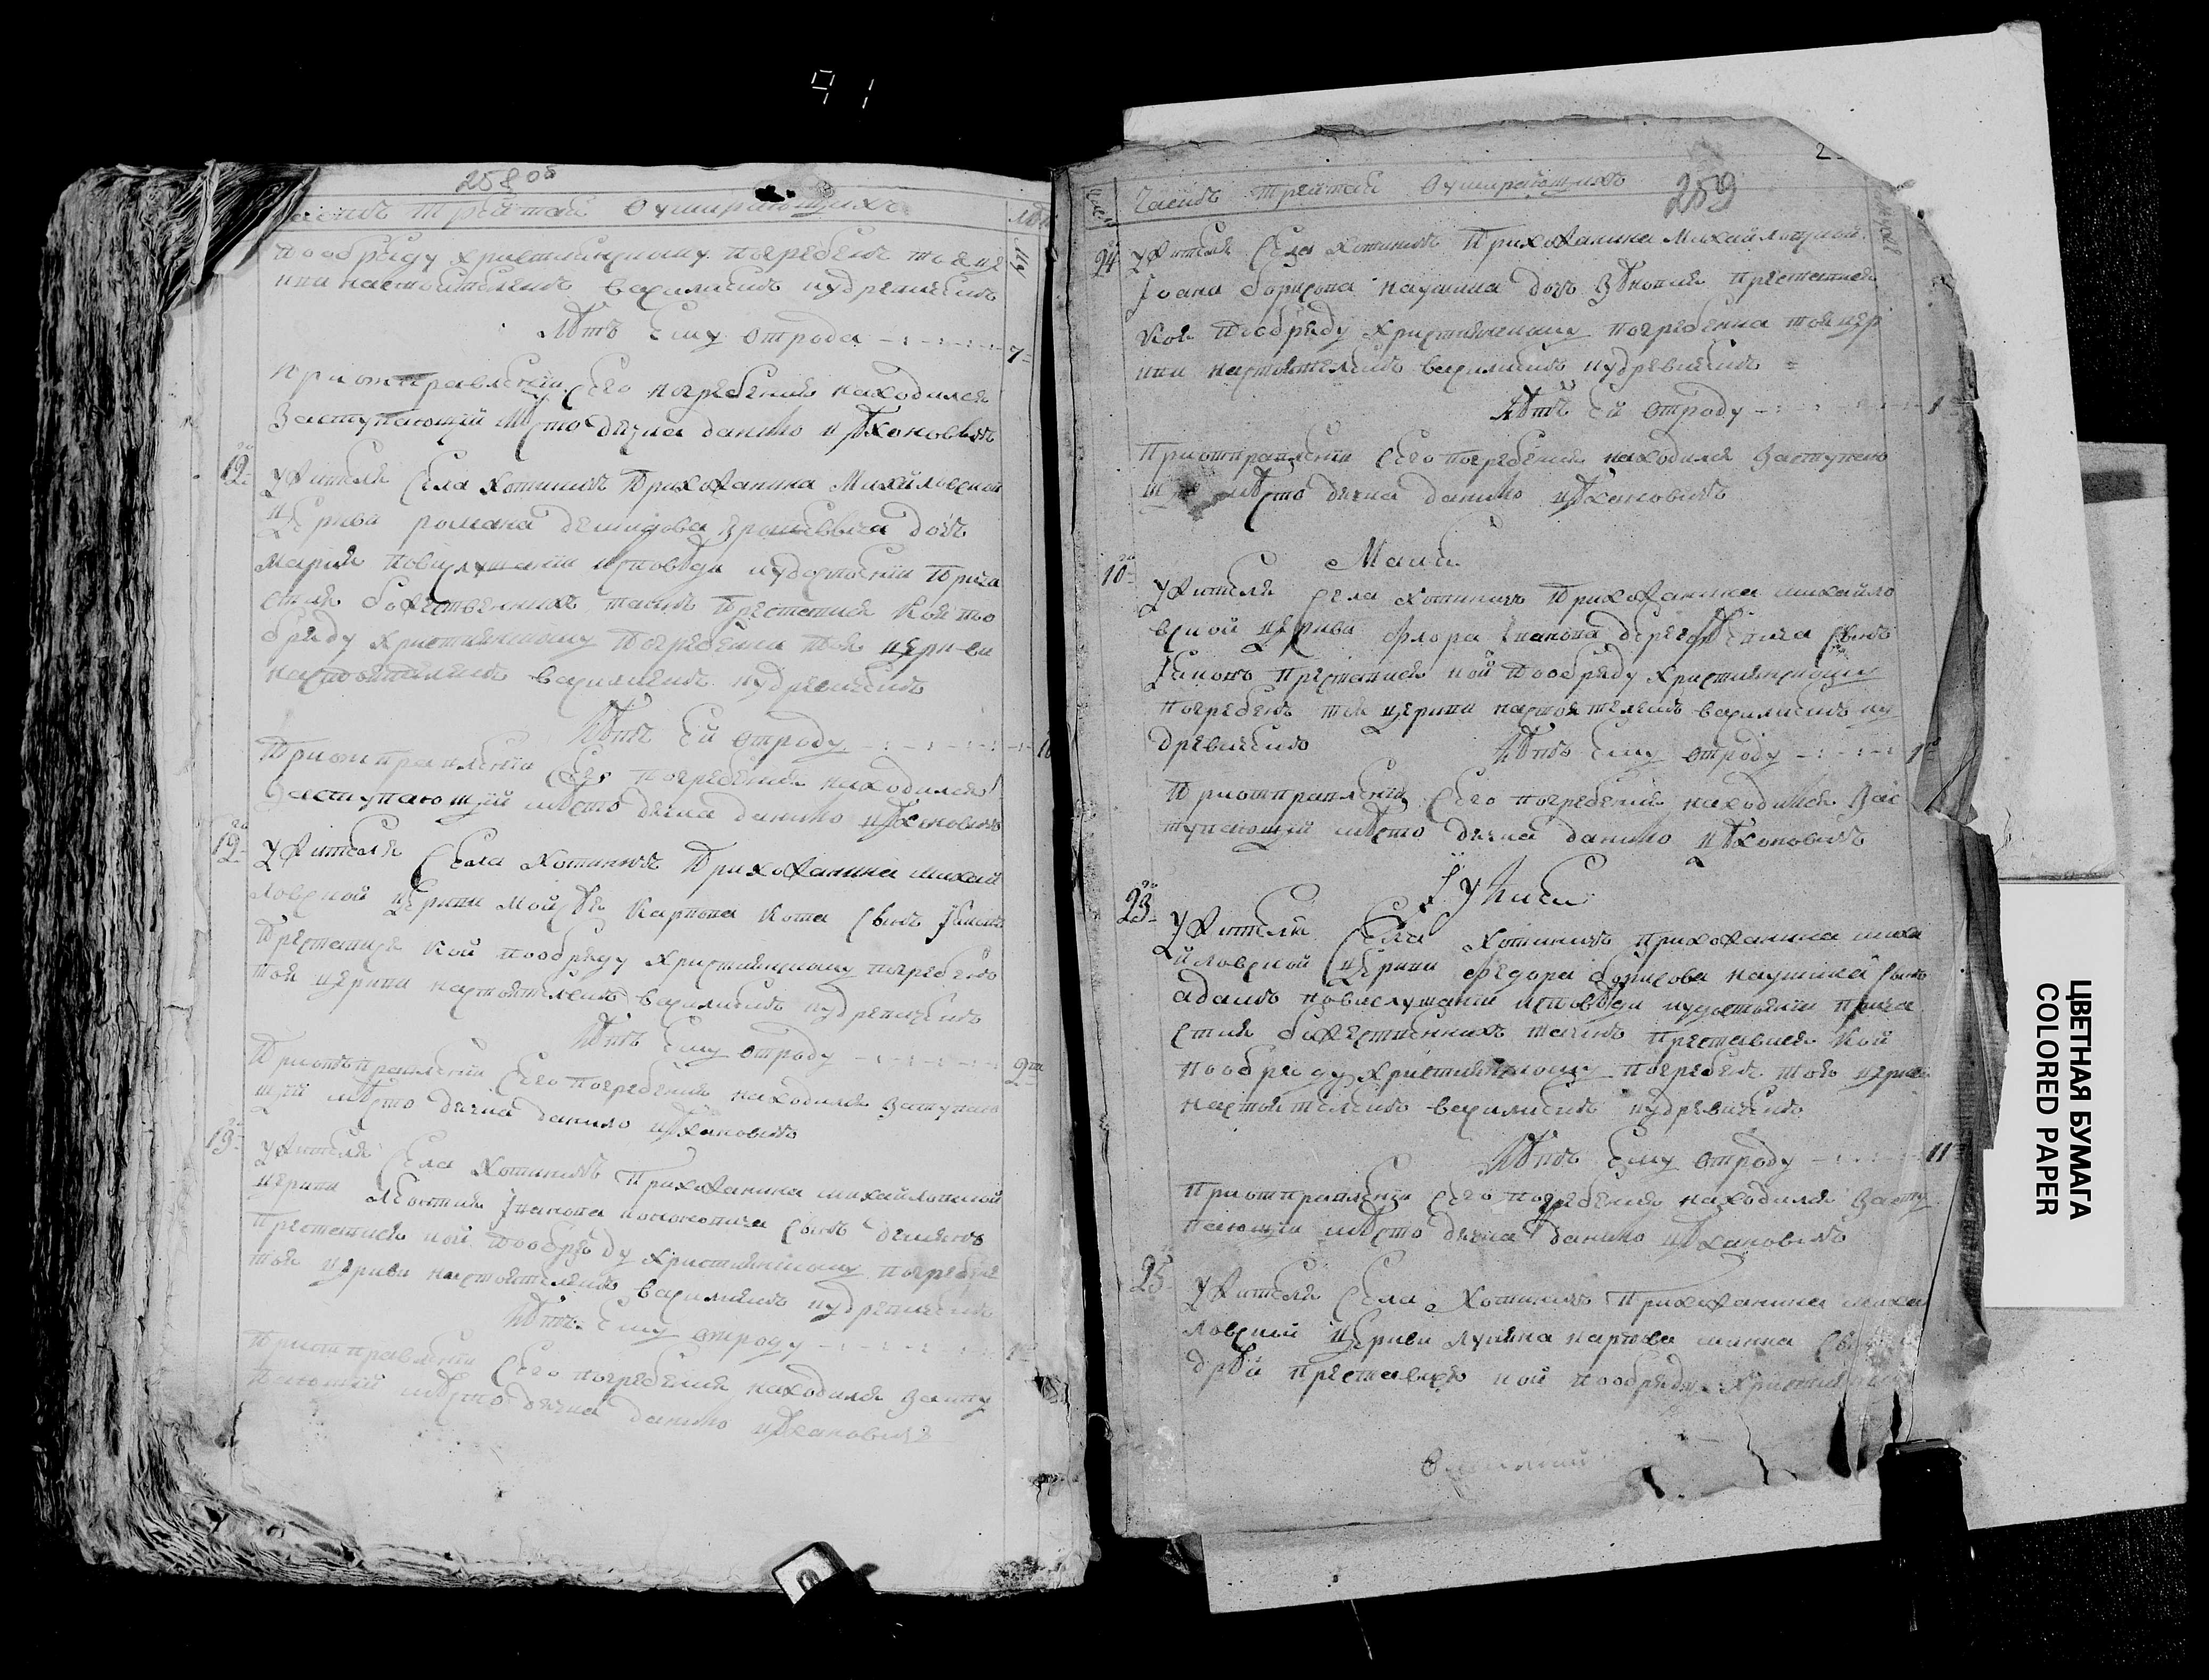 91
258 об
Часть третая О умирающихъ
пообряду християнскому погребенъ тоя це
ркви настоятелемъ василиемъ кудревичемъ
Лѣтъ ему отрода 7
Приотправлении сего погребения находился
Заступающий мѣсто дячка данило цѣхановичъ
12 Ужителя села Хотиничъ Прихожанина Михайловской
Церкви романа демидова дочъ
мария повислушании исповѣди иудостоении прича
стия божественнихъ таинъ преставися коя по
обряду християнскому погребенна тоя церкви
настоятелемъ василиемъ кудревичемъ
Лѣтъ ей отроду
Приотправлении сего погребения находился
Заступающий мѣсто дячка данило цѣхановичъ
12 Ужителя Села Хотиничъ Прихожанина михай
ловской Церкви Мойсѣя Карпова Кота синъ
Преставися кой пообряду християнскому погребенъ
тоя церкви настоятелемъ василиемъ кудревичемъ
Лѣтъ ему отроду 2
Приотправлении сего погребения находился Заступаю
щий мѣсто дячка данило цѣхановичъ
13 Ужителя Села Хотиничъ Прихожанина михайловской
церкви Леонтия Іванова синъ демянъ
Преставися кой пообряду християнскому погребенъ
тоя церкви настоятелемъ василиемъ кудревичемъ
Лѣтъ ему отроду 1
Приотправлении сего погребения находился Засту
пающий мѣсто дячка данило цѣхановичъ
2
259
Часть третая О умирающихъ
24 Ужителя Села Хотиничъ Прихожанина Михайловской
Іоана борисова наумика дочъ Зѣновия преставися
коя пообряду християнскому погребенна тоя цер
кви настоятелемъ василиемъ кудревичемъ
Лѣтъ ей отроду 1
Приотправлении сего погребения находился Заступаю
щ мѣсто дячка данило цѣхановичъ
Маия
10 Ужителя села Хотиничъ Прихожанина михайло
вской церкви флора Іванова синъ
Іаковъ преставися кой пообряду християнскому
погребенъ тоя церкви настоятелемъ василиемъ ку
древичемъ Лѣтъ ему отроду 1
Приотправлении сего погребения находился Зас
тупающий мѣсто дячка данило цѣхановичъ
Іуния
23 Ужителя Села Хотиничъ прихожанина миха
йловской Церкви федора борисова наумика синъ
адамъ повислушании исповѣди иудостоении прича
стия божественнихъ таинъ преставися кой
пообряду християнскому погребенъ тоя церкви
настоятелемъ василиемъ кудревичемъ
Лѣтъ ему отроду 11
Приотправлении сего погребения находился Засту
пающий мѣсто дячка данило цѣхановичъ
25 Ужителя Села Хотиничъ Прихожанина миха
ловской Церкви лукяна карпова
преставися кой пообряду
ЦВЕТНАЯ БУМАГА
COLORED PAPER